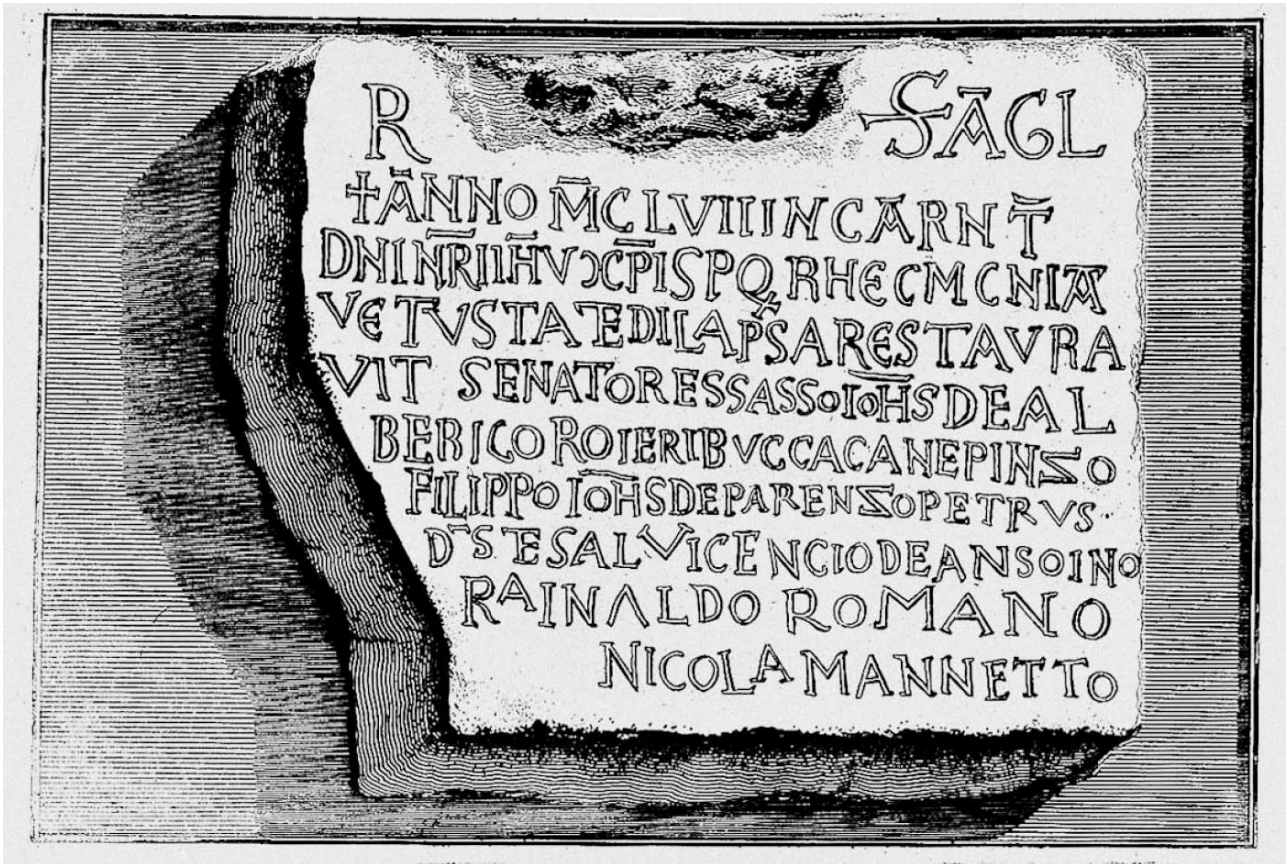 R S ĀGL
+ ĀNNO M̄CLVII INCARNT̄
DNI N̄RI IH̄V XC̄PI SPQR HEC MCNIA
VETUSTATE DILAPSA RESTAVRA
VIT SENATORES SASSO IOHS DE AL
BERICO ROIERI BVCCACANE PINZO
FILIPPO IOHS DE PARENZO PETRVS
D̄S TE SALVI CENCIO DE ANSOINO
RAINALDO ROMANO
NICOLA MANNETTO